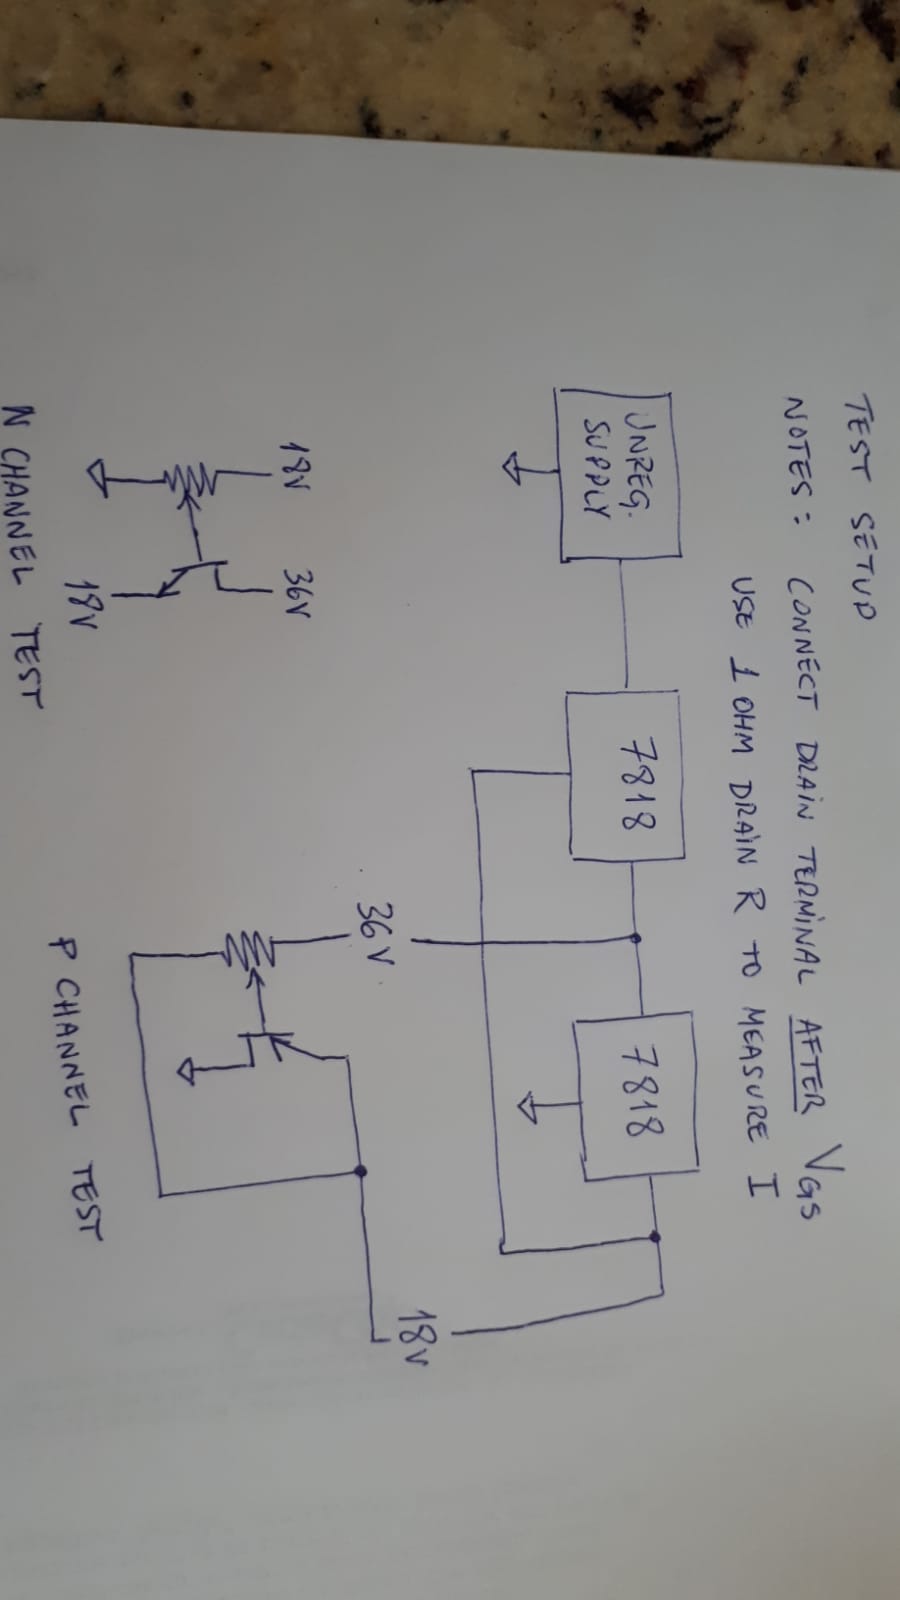 TEST SETUP
NOTES: CONNECT DRAIN TERMINAL AFTER VGS
USE 1 OHM DRAIN R TO MEASURE I
UNREG.
SUPPLY
7818
7818
36V
18V
18V
36V
18V
N CHANNEL TEST
P CHANNEL TEST